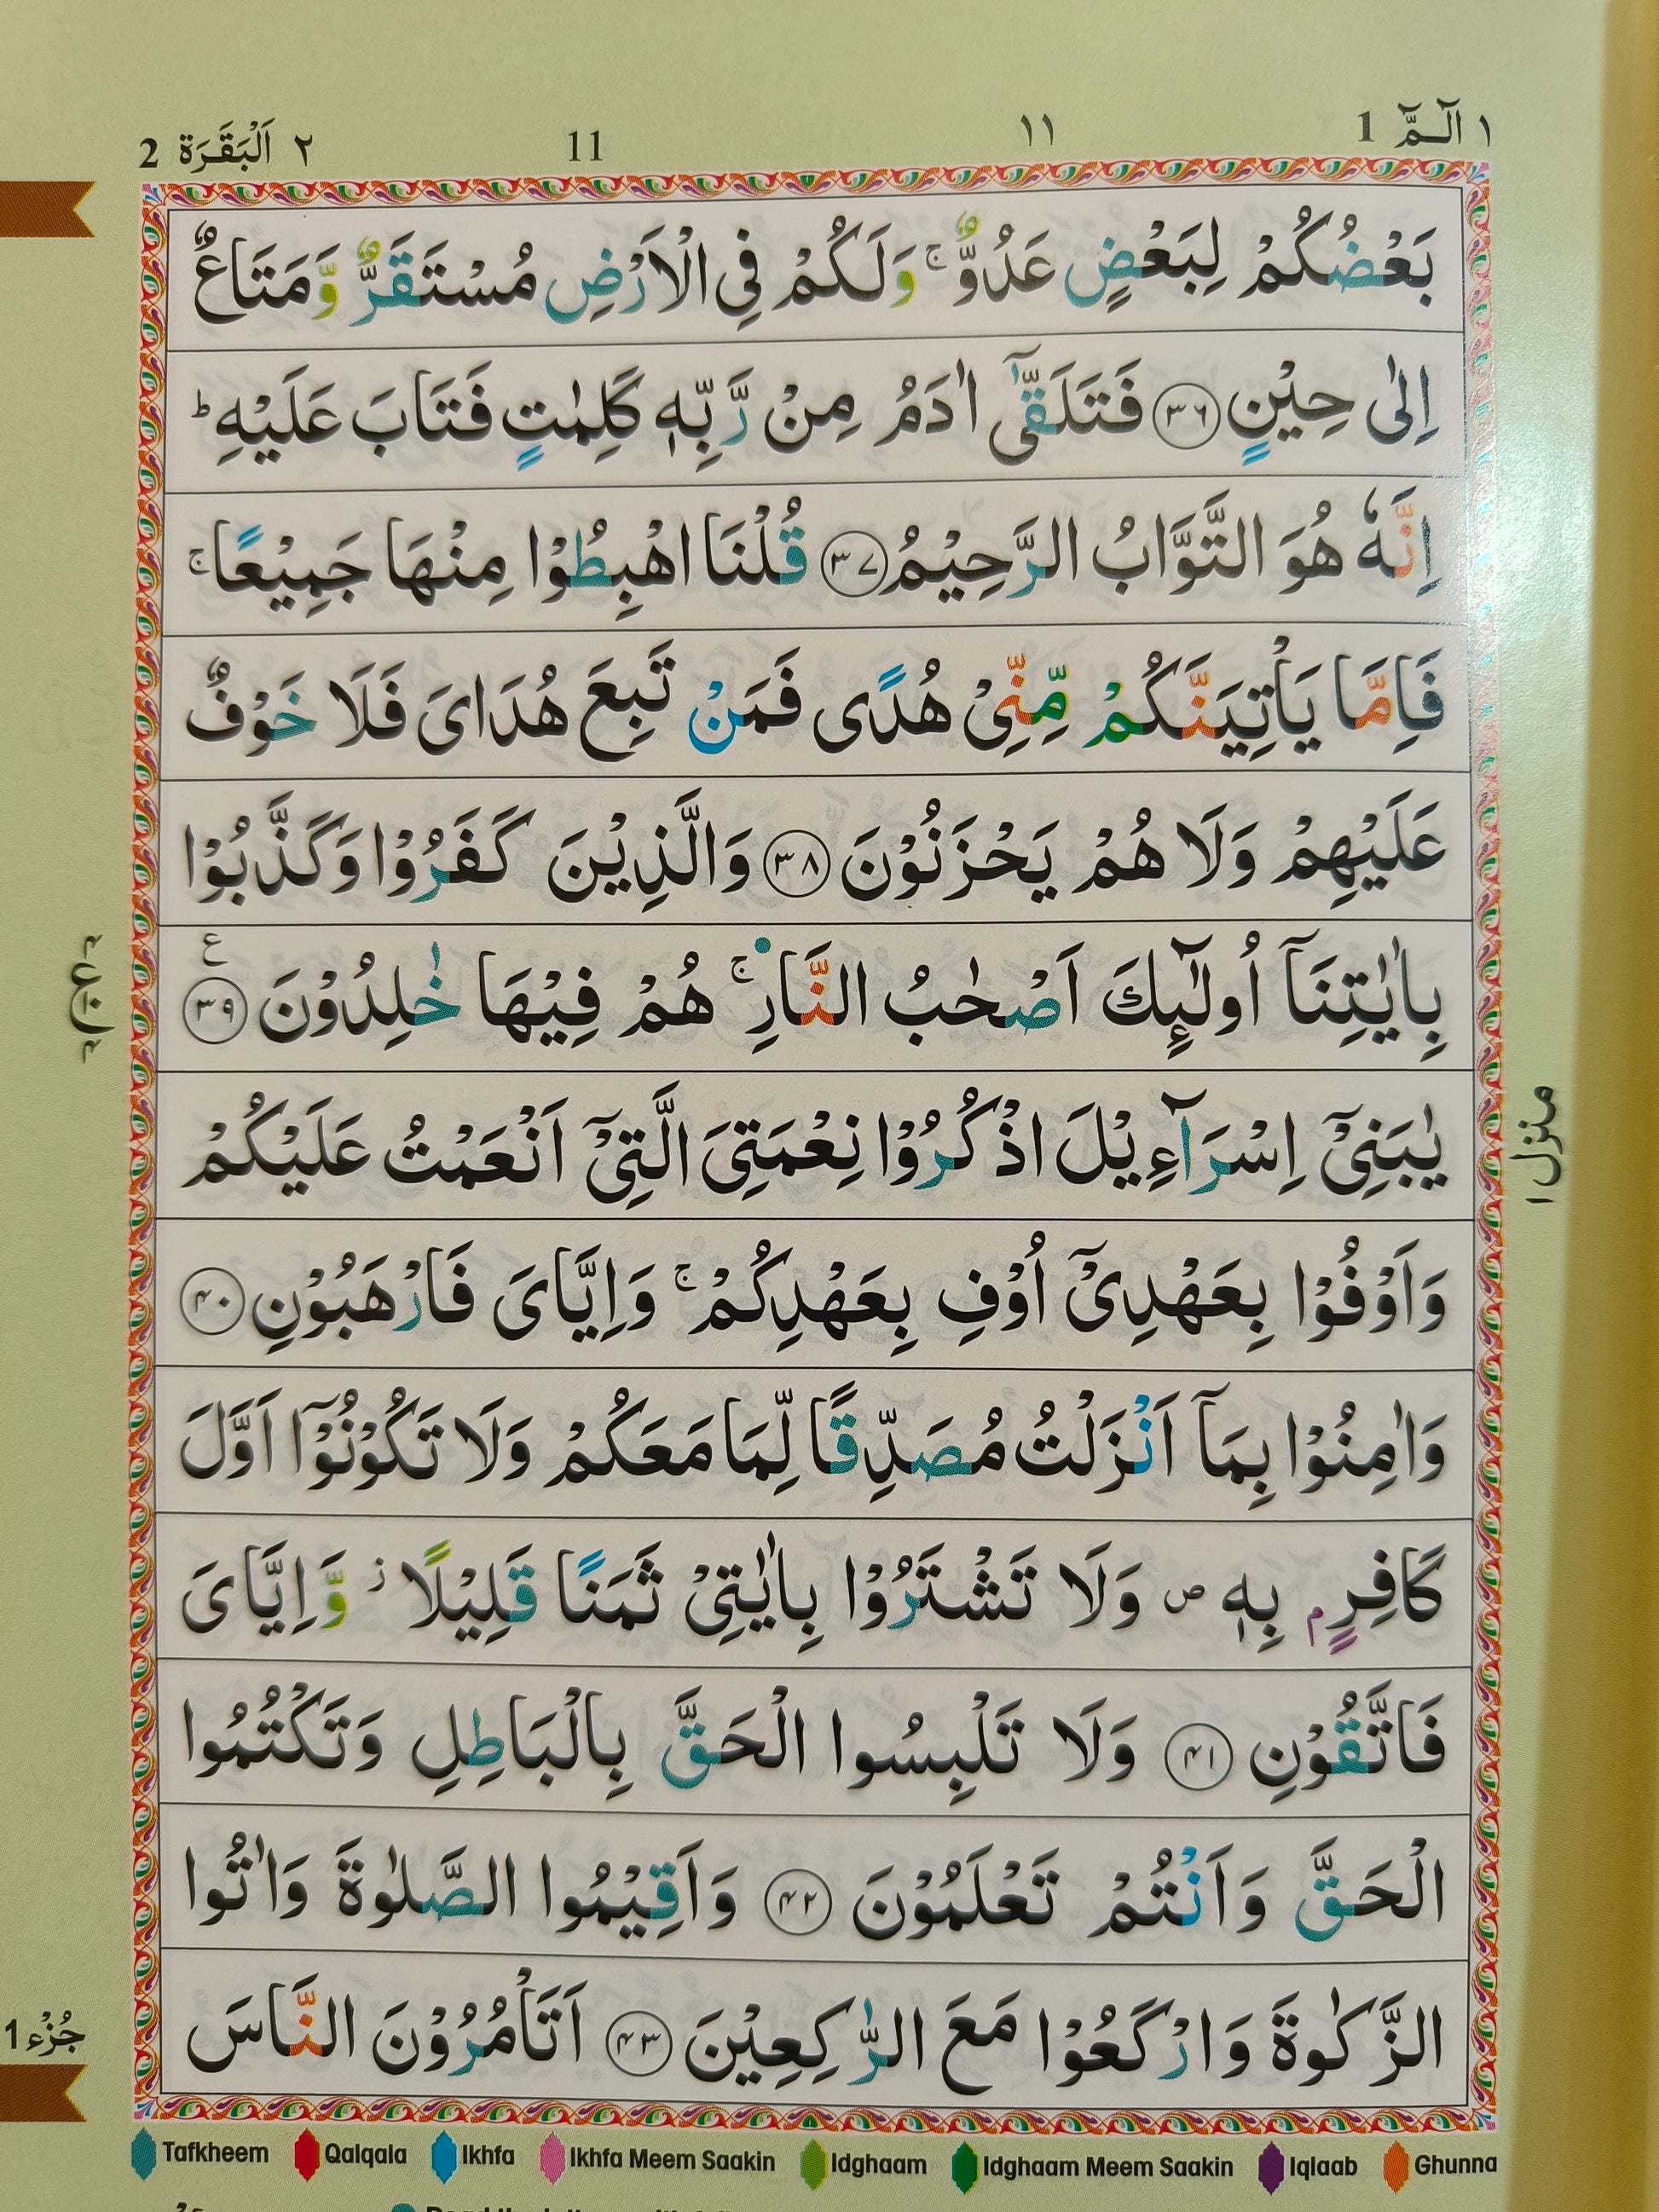 ١ الٓـمّٓ 1 ١١ 11 ٢ اَلْبَقَرَة 2
بَعْضُكُمْ لِبَعْضٍ عَدُوٌّ ۚ وَلَكُمْ فِى الْاَرْضِ مُسْتَقَرٌّ وَّمَتَاعٌ
اِلٰى حِيْنٍ ﴿٣٦﴾ فَتَلَقّٰٓى اٰدَمُ مِنْ رَّبِّهٖ كَلِمٰتٍ فَتَابَ عَلَيْهِ ؕ
اِنَّهٗ هُوَ التَّوَّابُ الرَّحِيْمُ ﴿٣٧﴾ قُلْنَا اهْبِطُوْا مِنْهَا جَمِيْعًا ۚ
فَاِمَّا يَاْتِيَنَّكُمْ مِّنِّىْ هُدًى فَمَنْ تَبِعَ هُدَاىَ فَلَا خَوْفٌ
عَلَيْهِمْ وَلَا هُمْ يَحْزَنُوْنَ ﴿٣٨﴾ وَالَّذِيْنَ كَفَرُوْا وَكَذَّبُوْا
بِاٰيٰتِنَآ اُولٰٓئِكَ اَصْحٰبُ النَّارِ ۚ هُمْ فِيْهَا خٰلِدُوْنَ ﴿٣٩﴾ ع
يٰبَنِىْٓ اِسْرَآءِيْلَ اذْكُرُوْا نِعْمَتِىَ الَّتِىْٓ اَنْعَمْتُ عَلَيْكُمْ
وَاَوْفُوْا بِعَهْدِىْٓ اُوْفِ بِعَهْدِكُمْ ۚ وَاِيَّاىَ فَارْهَبُوْنِ ﴿٤٠﴾
وَاٰمِنُوْا بِمَآ اَنْزَلْتُ مُصَدِّقًا لِّمَا مَعَكُمْ وَلَا تَكُوْنُوْٓا اَوَّلَ
كَافِرٍۭ بِهٖ ۖ وَلَا تَشْتَرُوْا بِاٰيٰتِىْ ثَمَنًا قَلِيْلًا ز وَّاِيَّاىَ
فَاتَّقُوْنِ ﴿٤١﴾ وَلَا تَلْبِسُوا الْحَقَّ بِالْبَاطِلِ وَتَكْتُمُوا
الْحَقَّ وَاَنْتُمْ تَعْلَمُوْنَ ﴿٤٢﴾ وَاَقِيْمُوا الصَّلٰوةَ وَاٰتُوا
الزَّكٰوةَ وَارْكَعُوْا مَعَ الرّٰكِعِيْنَ ﴿٤٣﴾ اَتَاْمُرُوْنَ النَّاسَ
منزل ١
جُزْء 1
Tafkheem Qalqala Ikhfa Ikhfa Meem Saakin Idghaam Idghaam Meem Saakin Iqlaab Ghunna